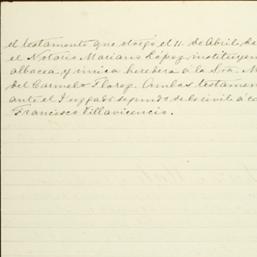 el testamento que otorgó el 11. de Abril, de
el Notario Mariano López, instituyen
albacea, y única heredera á la Sra. M
del Carmelo Florez. Ambas testamen
ante el Juzgado segundo de lo civil á ca
Francisco Villavicencio.